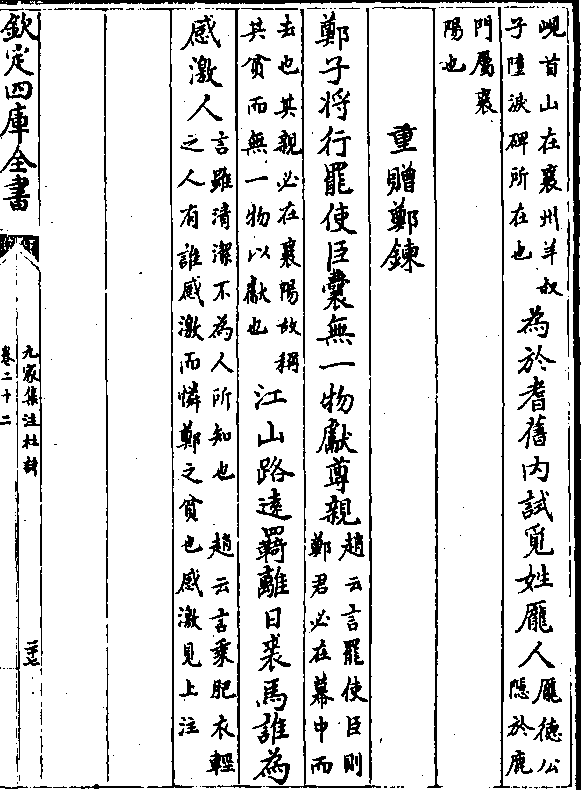 峴首山在襄州羊叔
子墮淚碑所在也
為於耆舊内試覓姓龐人
龐德公
隠於鹿
門屬襄
陽也
重贈鄭鍊
鄭子将行罷使臣囊無一物獻尊親
趙云言罷使臣則
鄭君必在幕中而
去也其親必在襄陽故稱
其貧而無一物以獻也
江山路遠羇離日裘馬誰為
感激人
言雖清潔不為人所知也　趙云言乗肥衣輕
之人有誰感激而憐鄭之貧也感激見上注
欽定四庫全書
九家集注杜詩
卷二十二